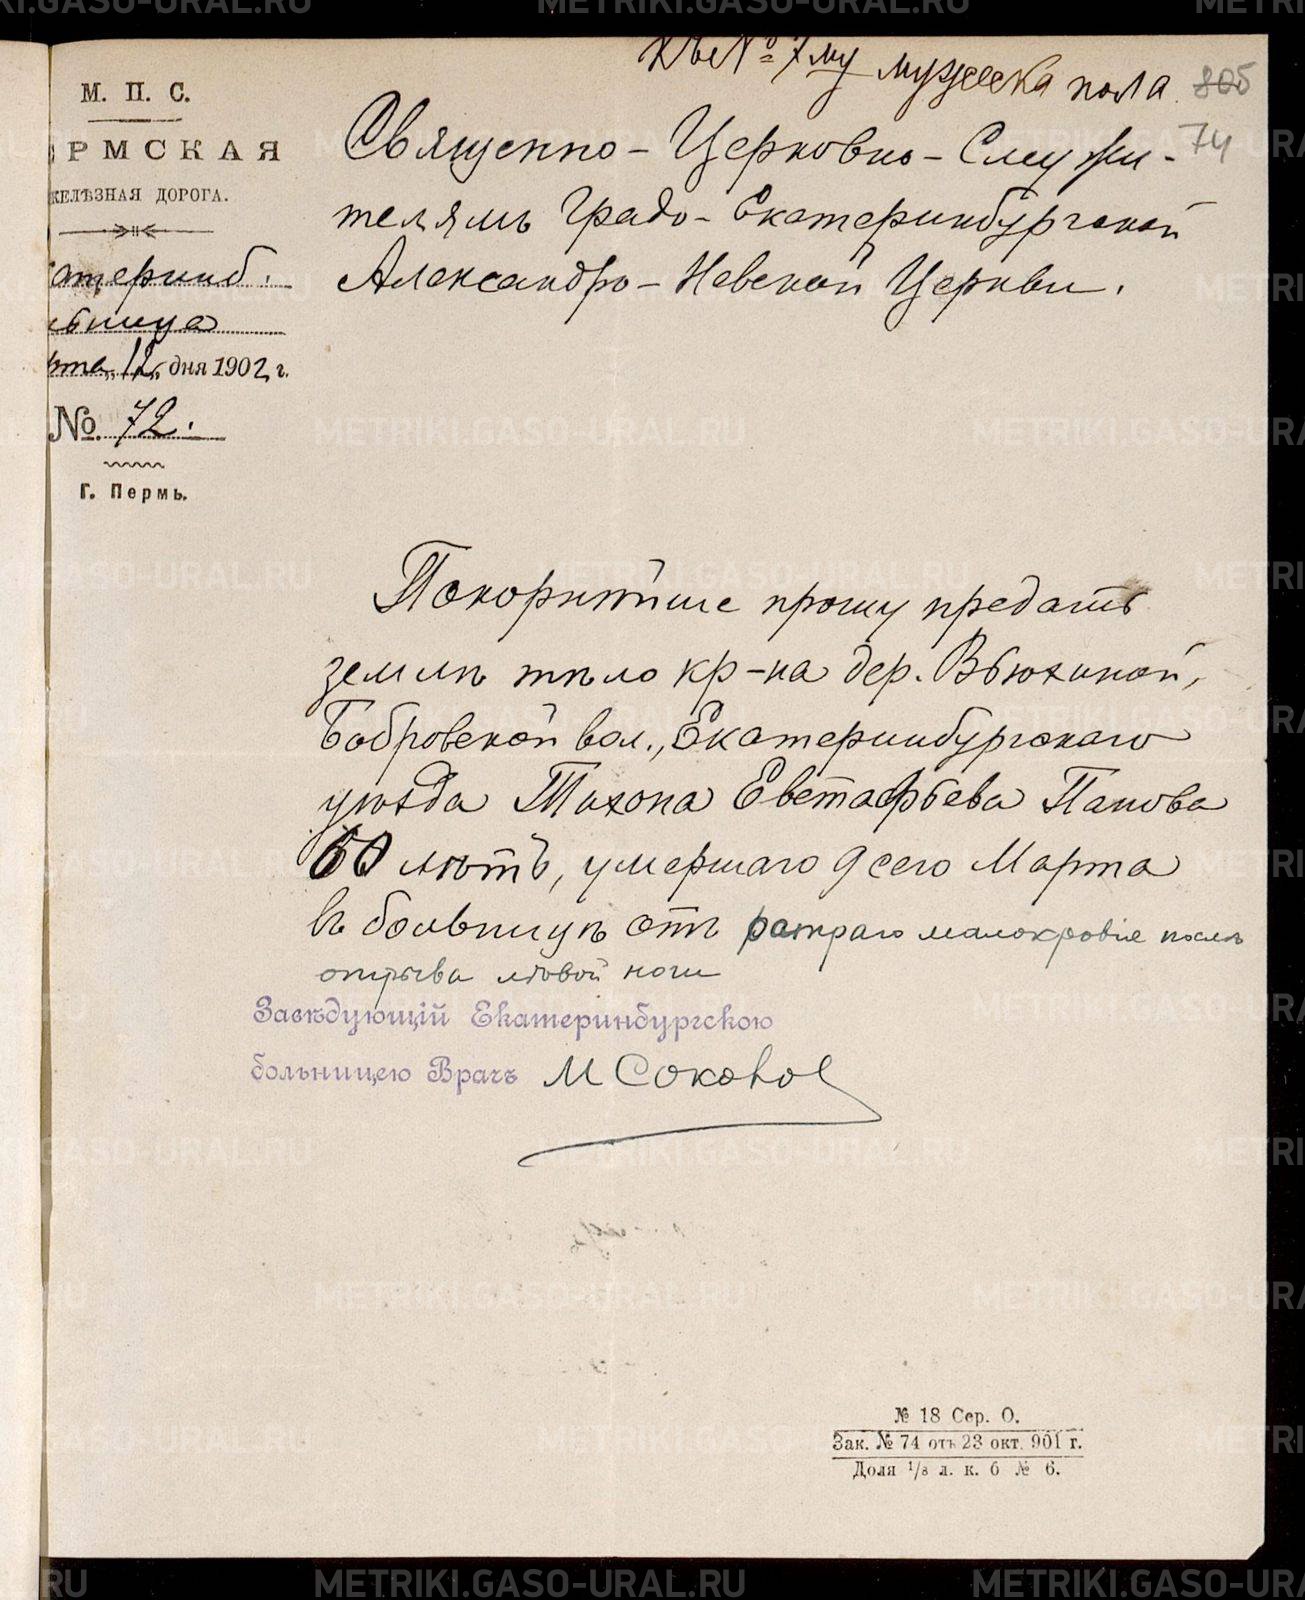 Къ № 7му мужеска пола 805
74
М. П. С.
РМСКАЯ
ЖЕЛѢЗНАЯ ДОРОГА.
атеринб.
ьница
рта „12„ дня 1902 г.
№ 72.
Г. Пермь.
Священно-Церковно-Служи-
телямъ Градо-Екатеринбургской
Александро-Невской Церкви.
Покорнѣйше прошу предать
землѣ тѣло кр-на дер. Вьюхиной,
Бобровской вол., Екатеринбургскаго
уѣзда Тихона Евстафьева Панова
60 лѣтъ, умершаго 9 сего Марта
въ больницѣ отъ остраго малокровія послѣ
отрыва лѣвой ноги
Завѣдующій Екатеринбургскою
больницею Врачъ М Соколов
№ 18 Сер. О.
Зак. № 74 отъ 23 окт. 901 г.
Доля 1/8 л. к. 6 № 6.
METRIKI.GASO-URAL.RU